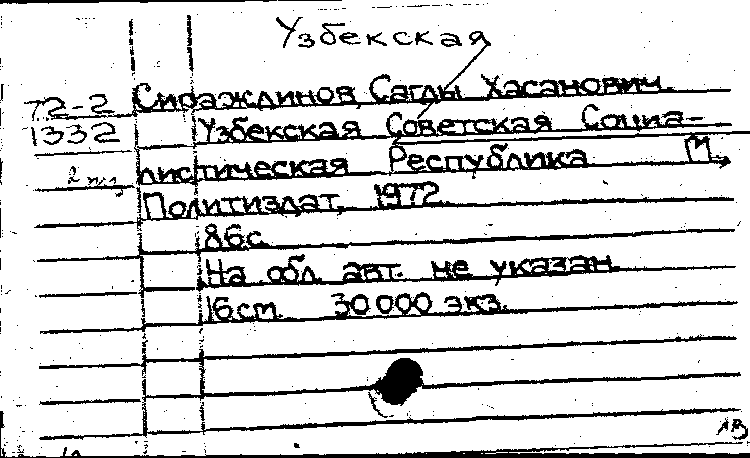 Узбекская
72-2 Сираждинов, Саглы Хасанович.
1332 Узбекская Советская Социа-
2 экз листическая Республика М.,
Политиздат, 1972.
86с.
На обл. авт. не указан.
16см. 30000 экз.